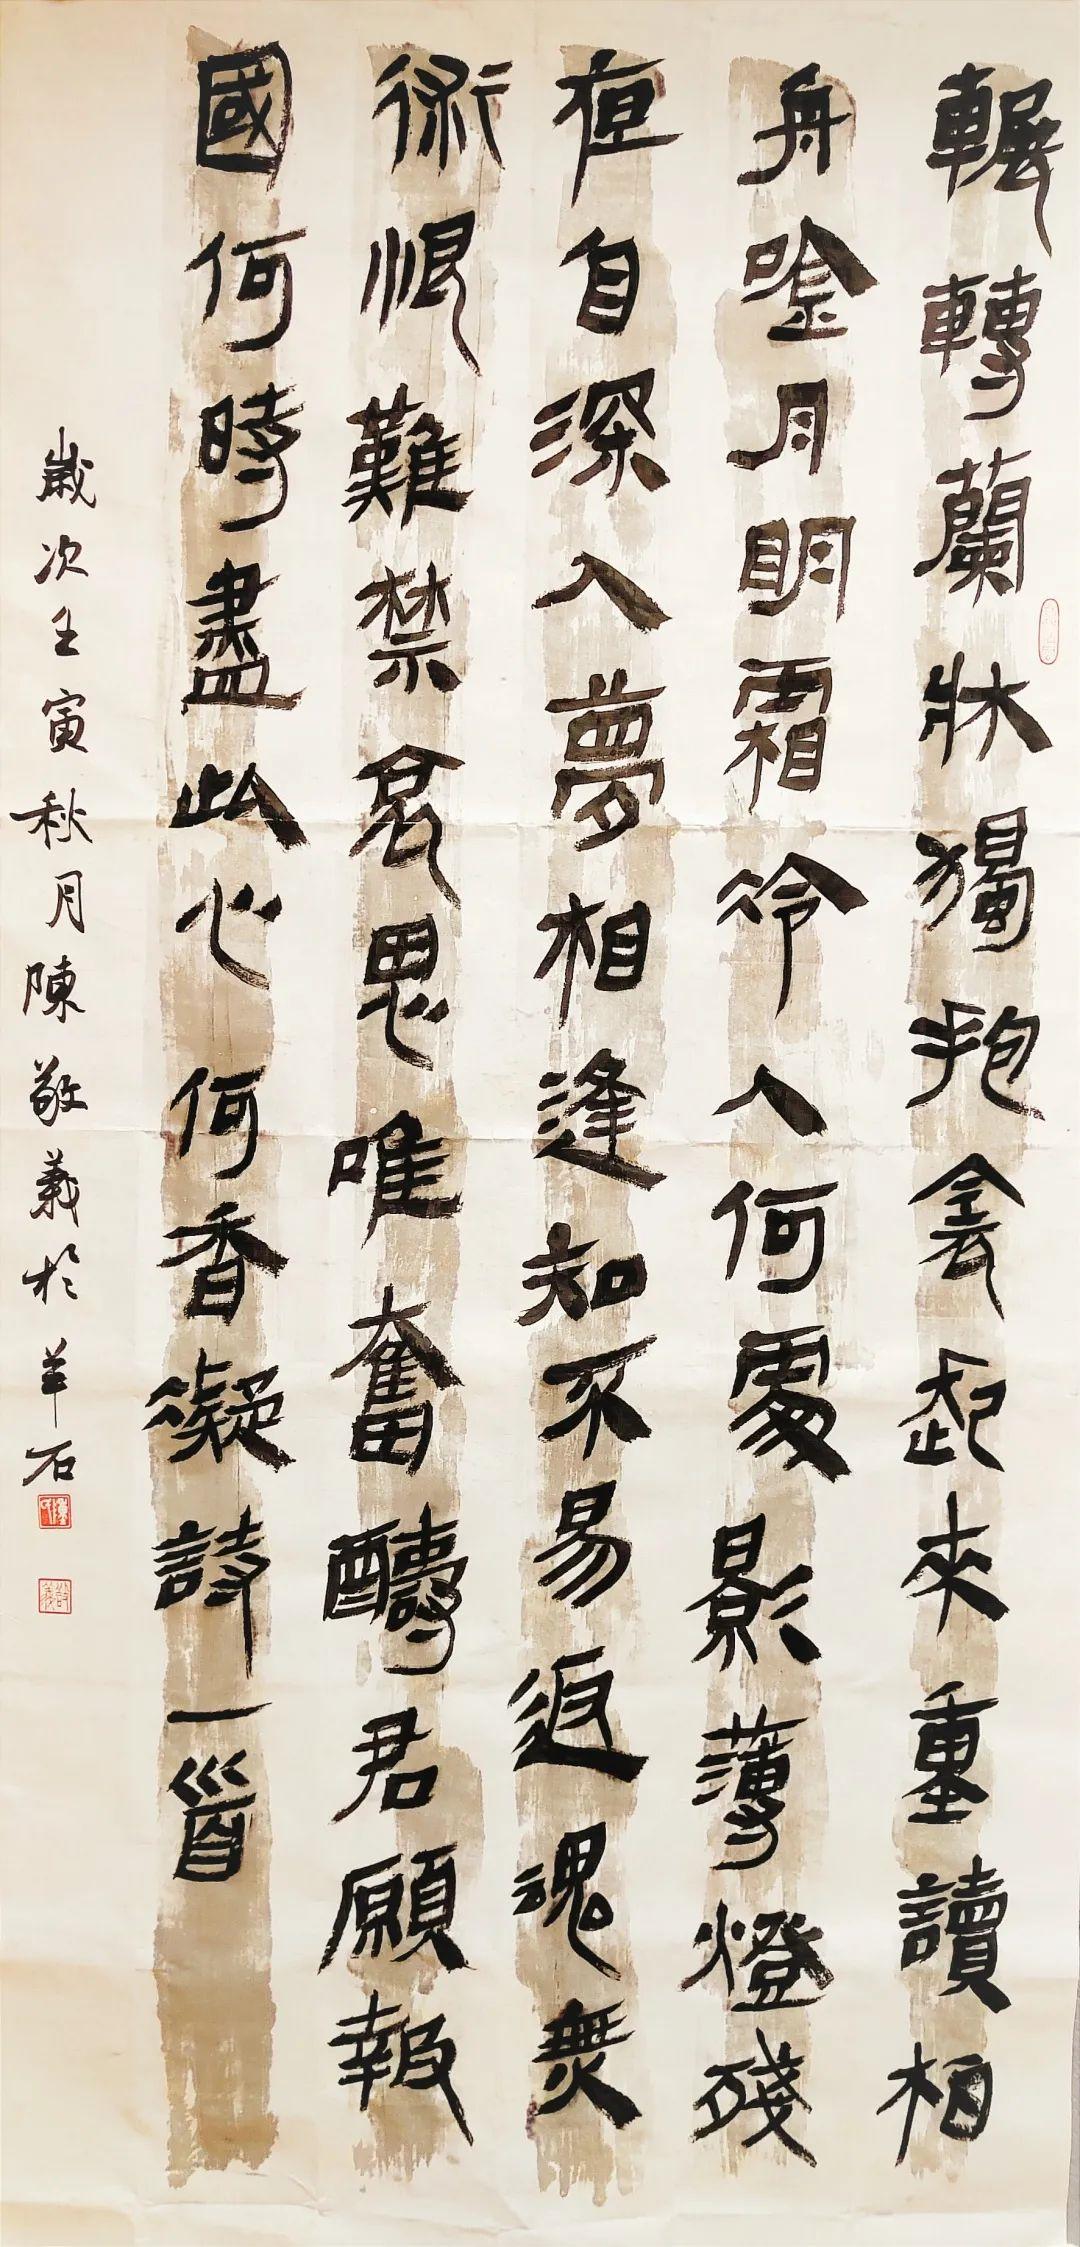 輾轉蘭牀獨抱衾起來重讀柏
舟唫月明霜冷人何處影薄燈殘
夜自深入夢相逢知不易返魂無
術恨難禁哀思唯奮醻君願報
國何時盡此心何香凝詩一首
歲次壬寅秋月陳敬義於羊石